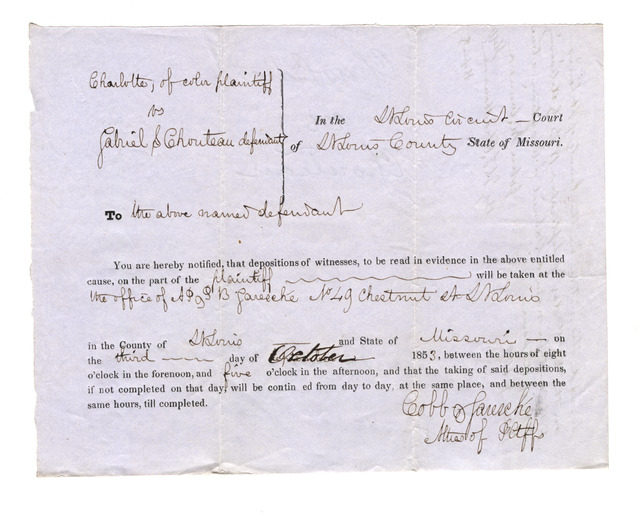 Charlotte, of color plaintiff
vs
Gabriel S Chouteau defendant
In the St Louis Circuit — Court
of St Louis County State of Missouri.
To the above named defendant
You are hereby notified, that depositions of witnesses, to be read in evidence in the above entitled
cause, on the part of the plaintiff will be taken at the
the office of B Garesche No 49 Chestnut St St Louis
in the County of St Louis and State of Missouri — on
the third day of October 1853, between the hours of eight
o'clock in the forenoon, and five o'clock in the afternoon, and that the taking of said depositions,
if not completed on that day, will be contin ed from day to day, at the same place, and between the
same hours, till completed.
Cobb & Garesche
Attys of Pltff